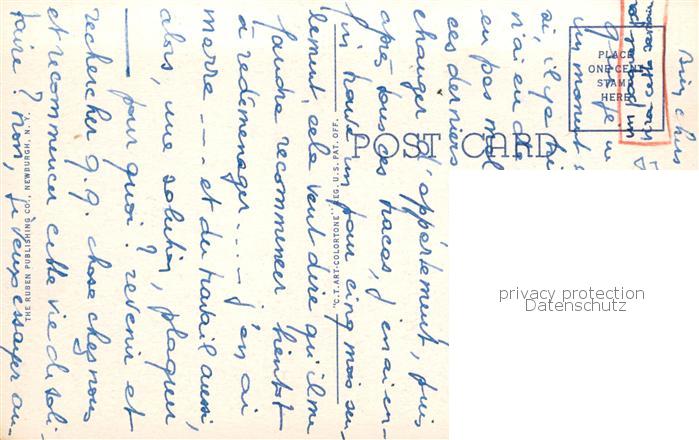 Bien chers
que je
un moment
si, il y a
n'ai eu d
en pas mal
ces derniers
changer d'appartement, puis
après tous ces tracas, j'en ai en-
fin trouvé un pour cinq mois seu-
lement, cela veut dire qu'il me
faudra recommencer bientôt
à redéménager --- j'en ai
marre --- et du travail aussi,
alors, une solution, plaquer
pour quoi? revenir et
rechercher q.q. chose chez nous
et recommencer cette vie de soli-
taire? non, je veux essayer au-
PLACE
ONE CENT
STAMP
HERE
POST CARD
"C.T. ART-COLORTONE" REG. U.S. PAT. OFF.
THE RUBEN PUBLISHING CO., NEWBURGH, N. Y.
privacy protection
Datenschutz